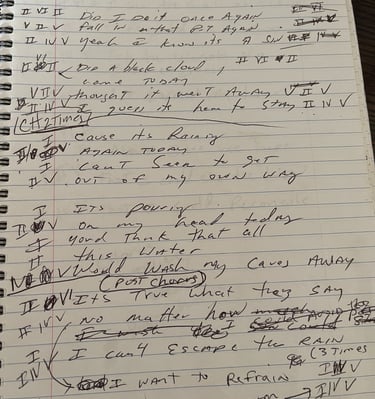 II VI II Did I Do it once Again II IV V
V II V fall in that Pit Again
II IV V Yeah I know its A Sin
II VI II Did A black cloud, II VI II
come TODAY
V VII thought it went AWAY V II V
II IV V I guess its here to STAY II IV V
CH 2 Times
I Cause its Raining
II V AGAIN TODAY
I Can't Seem to get
II V OUT of my own way
I ITS pouring
II V on my head today
I You'd Think that all
I this Water
V Would Wash my Cares AWAY
POST CHORUS
II VI Its True what they SAY
II IV V No matter how
I I can't Escape the RAIN
I IV V I want to Refrain (3 Times
I IV V
I IV V